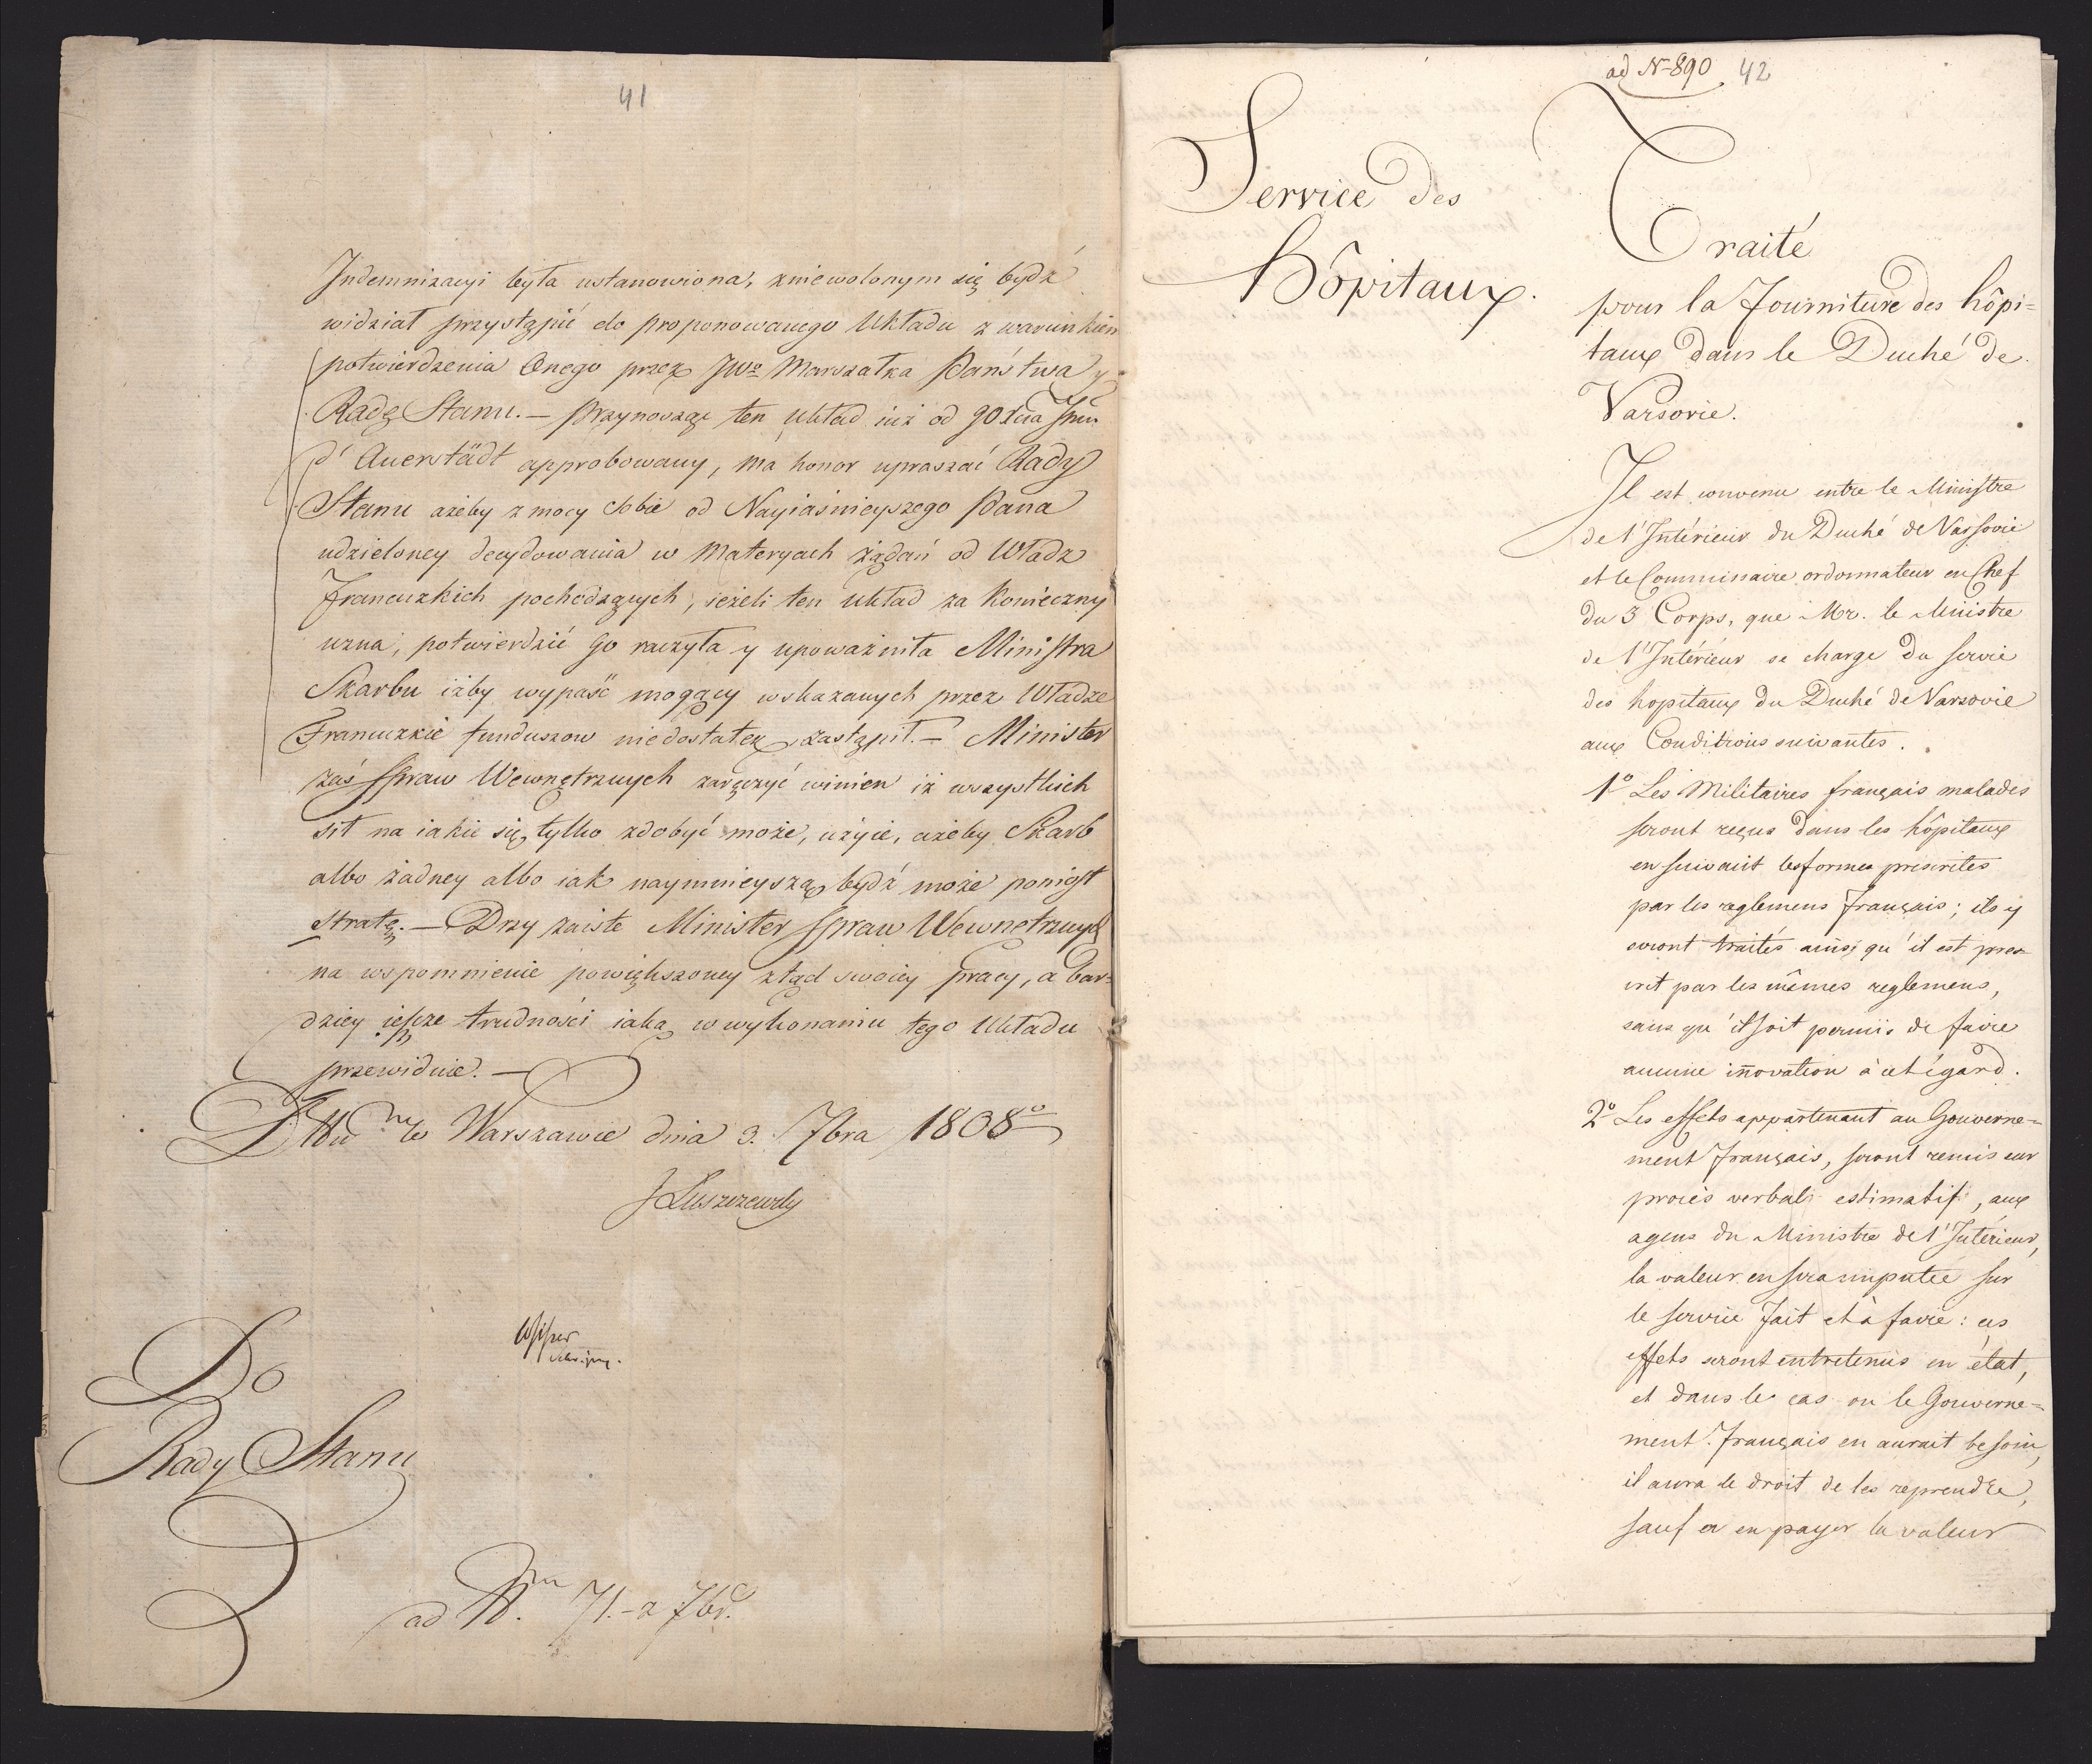 41
Indemnizacyi była ustanowiona, zniewolonym się bydź
widział przystąpić do proponowanego Układu z warunkiem
potwierdzenia Onego przez JWo Marszałka Państwa y
Radę Stanu. — Przynosząc ten układ już od
d'Auerstädt approbowany, ma honor upraszać Rady
Stanu ażeby z mocy Sobie od Nayiaśnieyszego Pana
udzieloney decydowania w Materyach żądań od Władz
Francuzkich pochodzących, ieżeli ten układ za Konieczny
uzna, potwierdzić go raczyła y upoważniła Ministra
Skarbu iżby wypaść mogący wskazanych przez Władze
Francuzkie funduszow niedostatek zastąpił. — Minister
zaś Spraw Wewnętrznych zaręczyć winien iż wszystkich
sił na iakie się tylko zdobyć może, użyie, ażeby Skarb
albo żadney albo iak naymnieyszą bydź może poniósł
stratę. — Drży zaiste Minister Spraw Wewnętrznych
na wspomnienie powiększoney ztąd swoiey pracy, a bar=
dziey ieszcze trudności iaką w wykonaniu tego Układu
przewiduie. —
w Warszawie dnia 3. 7bra 1808o
J Łuszczewski
Do
Rady Stanu
ad N. 71. - z 7br.
ad N 890 42
Service des
Hôpitaux.
Traité
pour la Fourniture des hôpi=
taux dans le Duché de
Varsovie.
Il est convenu entre le Ministre
de l'Intérieur du Duché de Varsovie
et le Commissaire ordonnateur en Chef
du 3 Corps, que Mr. le Ministre
de l'Intérieur se charge du service
des hopitaux du Duché de Varsovie
aux Conditions suivantes.
1o Les Militaires français malades
seront reçus dans les hôpitaux
en suivant les formes prescrites
par les reglemens français; ils y
seront traités ainsi qu'il est pres=
crit par les mêmes reglemens,
sans qu'il soit permis de faire
aucune innovation à cet égard.
2o Les effets appartenant au Gouverne=
ment français, seront remis sur
procès verbal estimatif, aux
agens du Ministre de l'Intérieur,
la valeur en sera imputée sur
le service fait et à faire: ces
effets seront entretenus en état,
et dans le cas ou le Gouverne=
ment français en aurait besoin,
il aura le droit de les reprendre,
sauf a en payer la valeur